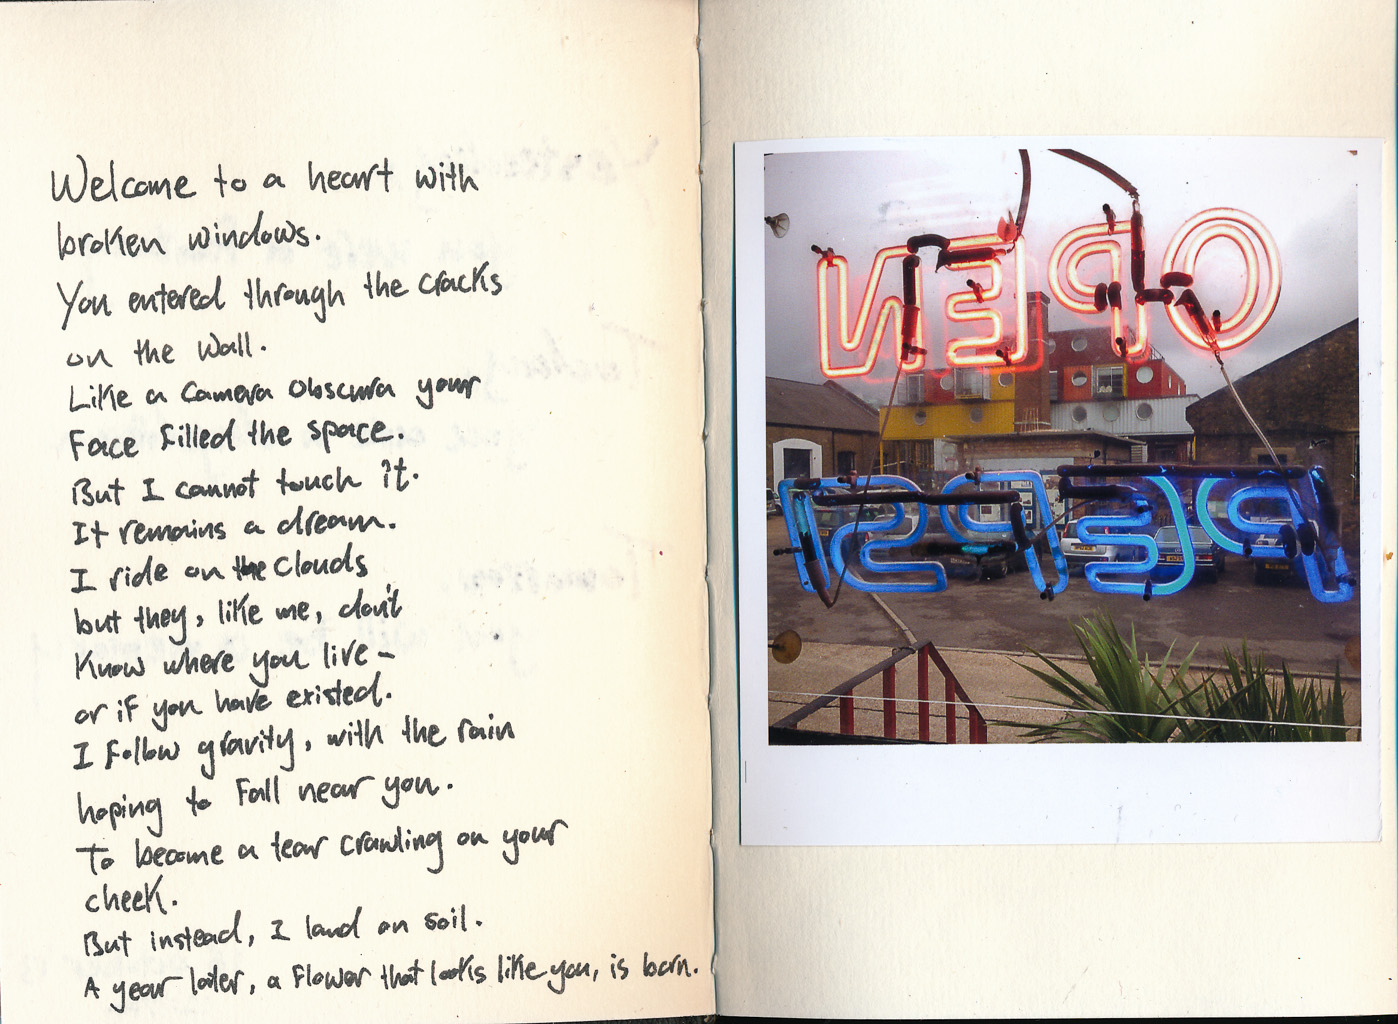 Welcome to a heart with
broken windows.
You entered through the cracks
on the wall.
Like a camera obscura your
Face filled the space.
But I cannot touch it.
It remains a dream.
I ride on the clouds
but they, like me, don't
Know where you live -
or if you have existed.
I Follow gravity, with the rain
hoping to Fall near you.
To become a tear crawling on your
cheek.
But instead, I land on soil.
A year later, a Flower that looks like you, is born.
OPEN
PEPSI